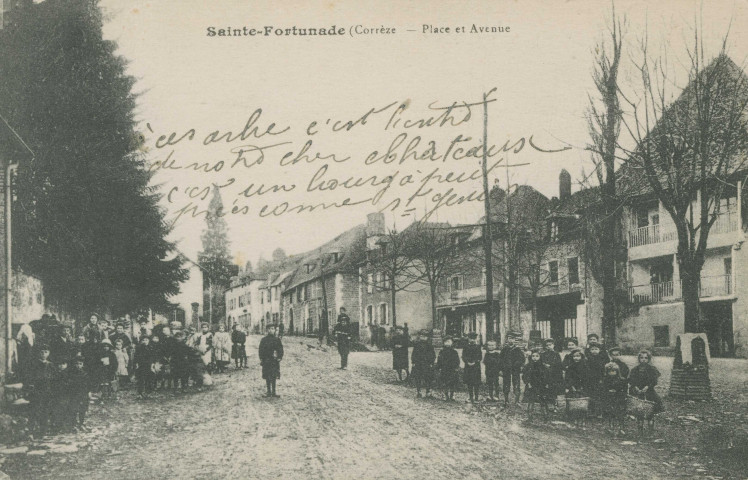 Sainte-Fortunade (Corrèze — Place et Avenue
ces arbre c'est l'entré
de notre cher châteaux
c'est un bourg à peu
près comme St